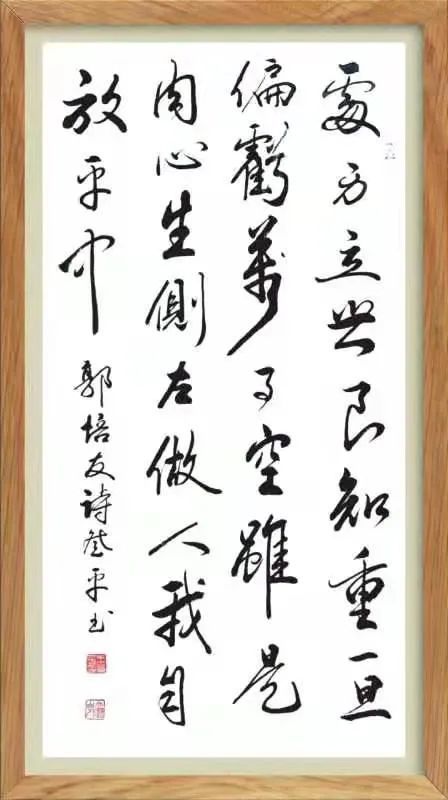 處身立世良知重一旦
偏虧萬事空雖是
肉心生側左做人我自
放平中
郭培友詩平书